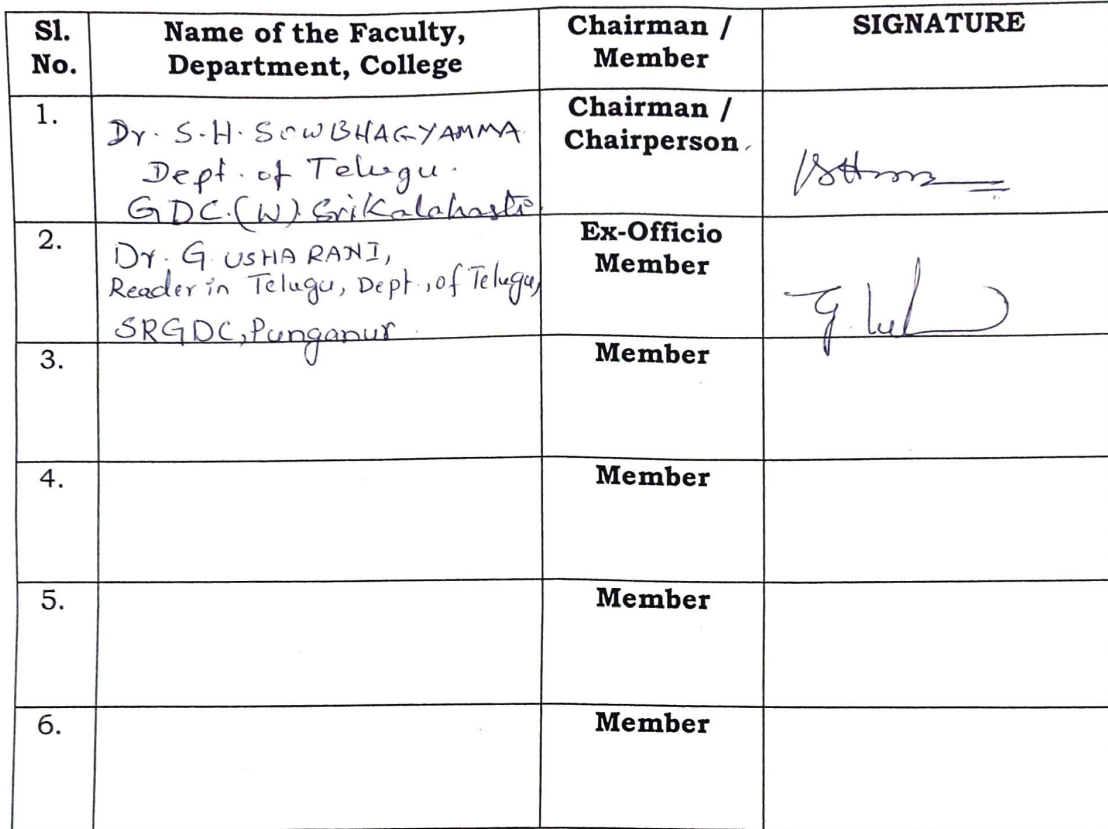 Sl. No.
Name of the Faculty, Department, College
Chairman / Member
SIGNATURE
1.
Dr. S.H. SOWBHAGYAMMA
Dept. of Telugu.
GDC.(W). Srikalahasti
Chairman / Chairperson
2.
Dr. G. USHA RANI,
Reader in Telugu, Dept., of Telugu,
SRGDC, Punganur.
Ex-Officio Member
3.
Member
4.
Member
5.
Member
6.
Member